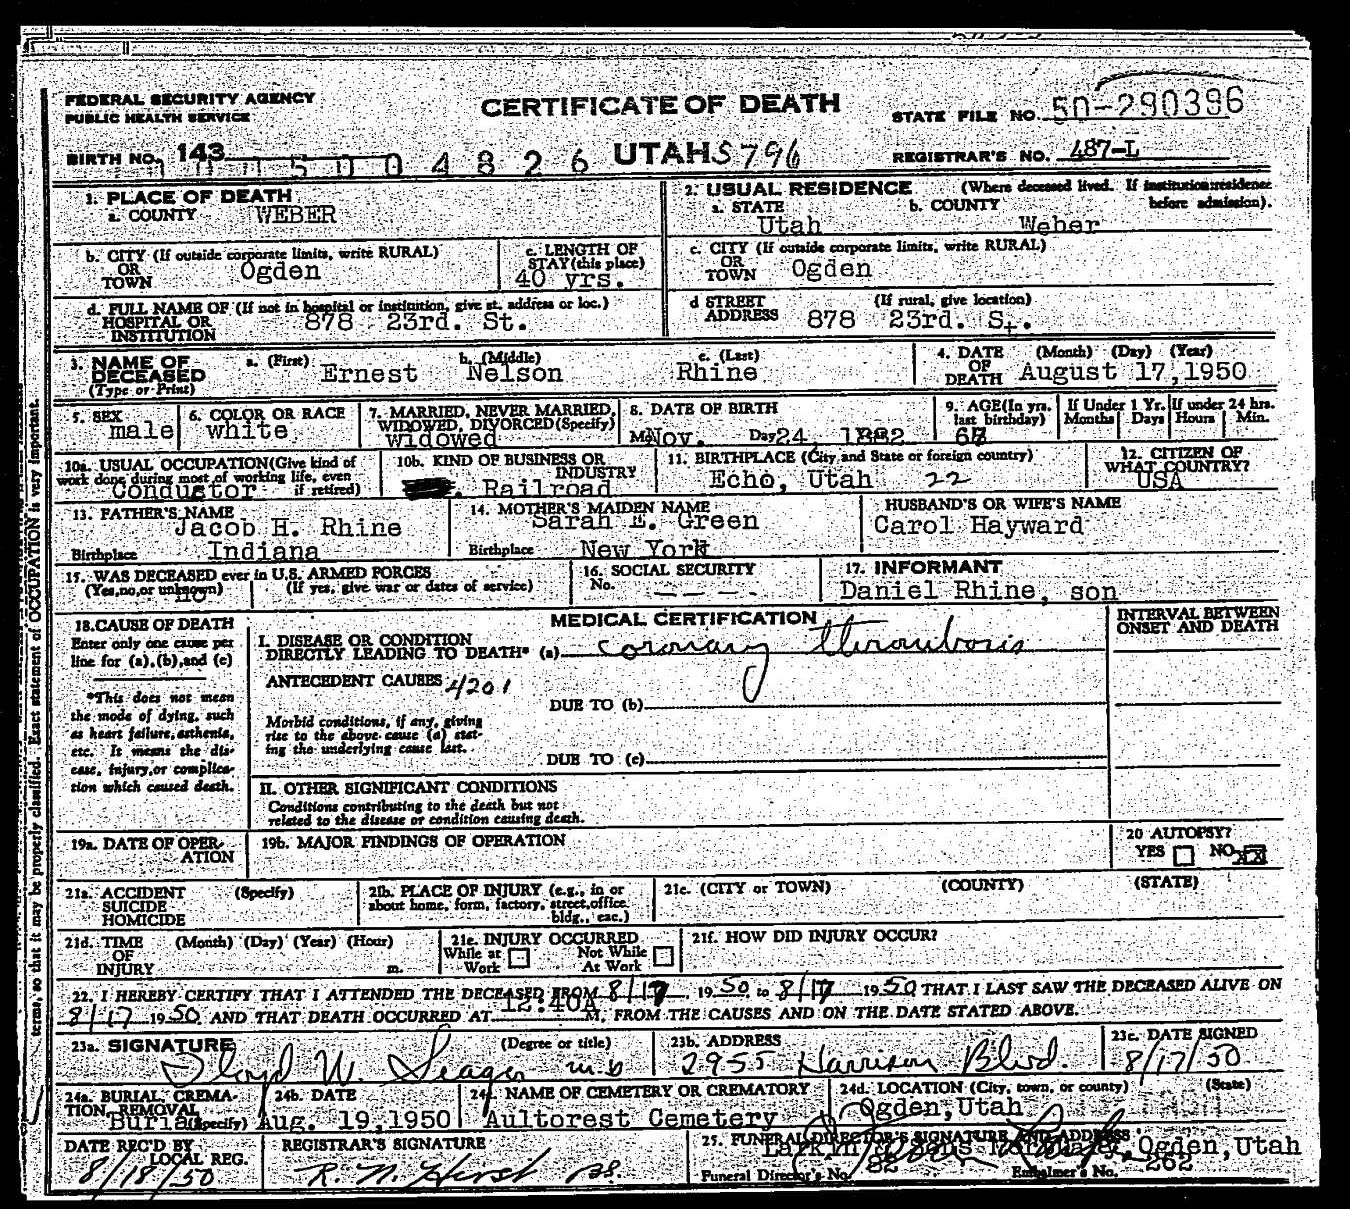 FEDERAL SECURITY AGENCY
PUBLIC HEALTH SERVICE
CERTIFICATE OF DEATH
STATE FILE NO. 50-290396
BIRTH NO. 143
5004826 UTAH 5796
REGISTRAR'S NO. 487-L
1. PLACE OF DEATH
a. COUNTY WEBER
2. USUAL RESIDENCE (Where deceased lived. If institution: residence before admission).
a. STATE Utah b. COUNTY Weber
b. CITY (If outside corporate limits, write RURAL) OR TOWN Ogden
c. LENGTH OF STAY (this place) 40 yrs.
c. CITY (If outside corporate limits, write RURAL) OR TOWN Ogden
d. FULL NAME OF (If not in hospital or institution, give st. address or loc.) HOSPITAL OR INSTITUTION 878 23rd. St.
d STREET ADDRESS (If rural, give location) 878 23rd. St.
3. NAME OF DECEASED (Type or Print) a. (First) Ernest b. (Middle) Nelson c. (Last) Rhine
4. DATE OF DEATH (Month) (Day) (Year) August 17, 1950
5. SEX male
6. COLOR OR RACE white
7. MARRIED, NEVER MARRIED, WIDOWED, DIVORCED (Specify) widowed
8. DATE OF BIRTH Mo. Nov. Day 24, 1882
9. AGE (In yrs. last birthday) 67
If Under 1 Yr. Months Days
If under 24 hrs. Hours Min.
10a. USUAL OCCUPATION (Give kind of work done during most of working life, even if retired) Conductor
10b. KIND OF BUSINESS OR INDUSTRY Railroad
11. BIRTHPLACE (City and State or foreign country) Echo, Utah 22
12. CITIZEN OF WHAT COUNTRY? USA
13. FATHER'S NAME Jacob H. Rhine
Birthplace Indiana
14. MOTHER'S MAIDEN NAME Sarah E. Green
Birthplace New York
HUSBAND'S OR WIFE'S NAME
Carol Hayward
15. WAS DECEASED ever in U.S. ARMED FORCES
(Yes, no, or unknown) no (If yes, give war or dates of service)
16. SOCIAL SECURITY No. - - - -
17. INFORMANT
Daniel Rhine, son
18. CAUSE OF DEATH
Enter only one cause per line for (a), (b), and (c)
*This does not mean the mode of dying, such as heart failure, asthenia, etc. It means the disease, injury, or complication which caused death.
MEDICAL CERTIFICATION
INTERVAL BETWEEN ONSET AND DEATH
I. DISEASE OR CONDITION DIRECTLY LEADING TO DEATH* (a) coronary thrombosis
ANTECEDENT CAUSES 4201
DUE TO (b)
Morbid conditions, if any, giving rise to the above cause (a) stating the underlying cause last.
DUE TO (c)
II. OTHER SIGNIFICANT CONDITIONS
Conditions contributing to the death but not related to the disease or condition causing death.
19a. DATE OF OPERATION
19b. MAJOR FINDINGS OF OPERATION
20 AUTOPSY?
YES NO XX
21a. ACCIDENT SUICIDE HOMICIDE (Specify)
21b. PLACE OF INJURY (e.g., in or about home, form, factory, street, office bldg., eac.)
21c. (CITY or TOWN) (COUNTY) (STATE)
21d. TIME OF INJURY (Month) (Day) (Year) (Hour) m.
21e. INJURY OCCURRED
While at Work Not While At Work
21f. HOW DID INJURY OCCUR?
22. I HEREBY CERTIFY THAT I ATTENDED THE DECEASED FROM 8/17, 1950, to 8/17 1950, THAT I LAST SAW THE DECEASED ALIVE ON
8/17 1950. AND THAT DEATH OCCURRED AT 12:40A M. FROM THE CAUSES AND ON THE DATE STATED ABOVE.
23a. SIGNATURE (Degree or title) Floyd W. Seager M.D
23b. ADDRESS 2955 Harrison Blvd.
23c. DATE SIGNED 8/17/50
24a. BURIAL, CREMATION, REMOVAL (Specify) Burial
24b. DATE Aug. 19, 1950
24c. NAME OF CEMETERY OR CREMATORY Aultorest Cemetery
24d. LOCATION (City, town, or county) (State) Ogden, Utah
DATE REC'D BY LOCAL REG.
8/18/50
REGISTRAR'S SIGNATURE
25. FUNERAL DIRECTOR'S SIGNATURE AND ADDRESS
Larkin & Sons Mortuary, Ogden, Utah
Funeral Director's No. 82 Embalmer's No. 262
terms, so that it may be properly classified. Exact statement of OCCUPATION is very important.